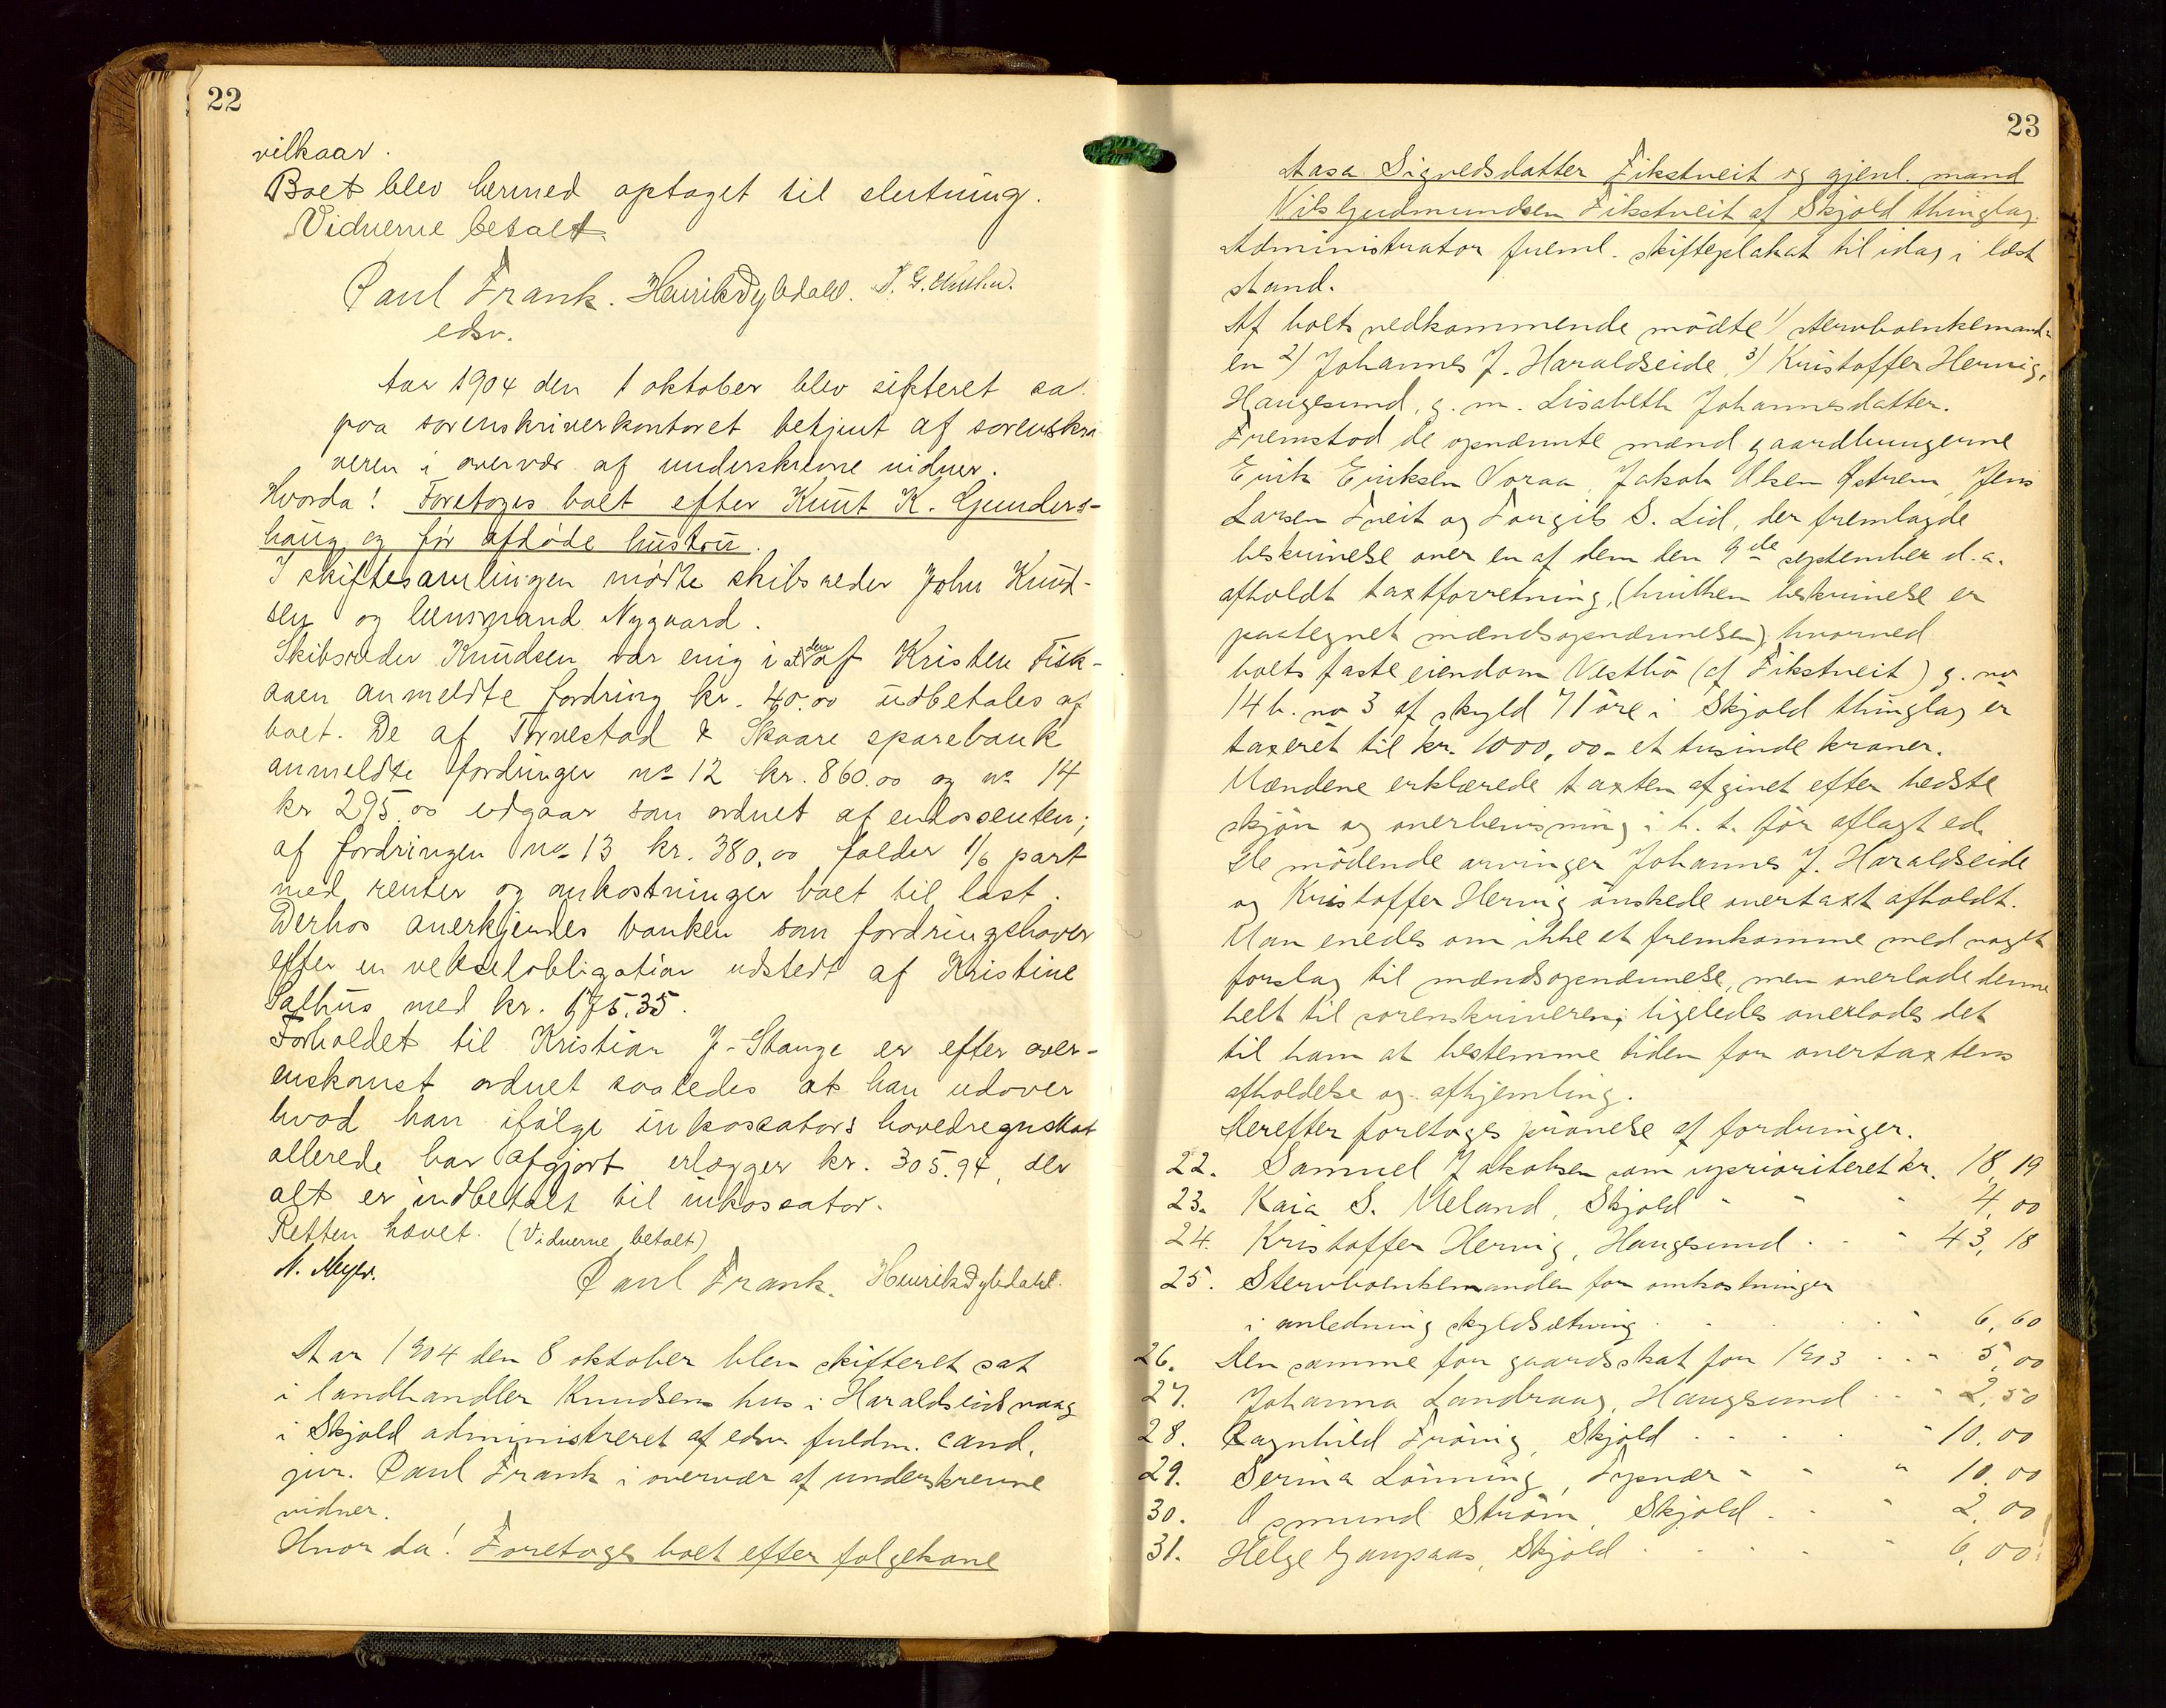 22
vilkaar.
Boet blev hermed optaget til slutning.
Vidnerne betalt.
Paul Frank. Henrik Dybdahl.
edsv.
Aar 1904 den 1 oktober blev skifteret sat
paa sorenskriverkontoret betjent af sorenskri
veren i overvær af underskrevne vidner.
Hvorda! Foretoges boet efter Knut K. Gunders-
haug og før afdøde hustru.
I skiftesamlingen mødte skibsreder John Knud-
sen og lensmand Nygaard.
Skibsreder Knudsen var enig i at den af Kristen Fisk-
aaen anmeldte fordring kr. 40.00 udbetales af
boet. De af Torvestad & Skaare sparebank
anmeldte fordringer no 12 kr. 860.00 og no 14
kr 295.00 udgaar som ordnet af endossenten;
af fordringen no 13 kr. 380.00 falder 1/6 part
med renter og omkostninger boet til last.
Derhos anerkjendes banken som fordringshaver
efter en vekselobligation udstedt af Kristine
Salhus med kr. 175.35.
Forholdet til Kristian J. Stange er efter over-
enskomst ordnet saaledes at han udover
hvad han ifølge inkassators hovedregnskab
allerede har afgjort erlægger kr. 305.94, der
alt er indbetalt til inkassator.
Retten hævet. (Vidnerne betalt)
N. Meyer.
Paul Frank. Henrik Dybdahl.
Aar 1904 den 8 oktober blev skifteret sat
i landhandler Knudsens hus i Haraldseidvaag
i Skjold administreret af edsv. fuldm. cand.
jur. Paul Frank i overvær af underskrevne
vidner.
Hvor da! Foretoges boet efter følgekone
23
Aasa Sigvedsdatter Fikstveit og gjenl. mand
Nils Gudmundsen Fikstveit af Skjold thinglag.
Administrator freml. skifteplakat til idag i læst
stand.
Af boets vedkommende mødte 1/ stervboenkemand-
en 2/ Johannes J. Haraldseide, 3/ Kristoffer Hervig,
Haugesund, g. m. Lisabeth Johannesdatter.
Fremstod de opnævnte mænd gaardbrugerne
Erik Eriksen Voraa, Jakob Olsen Østrem, Jens
Larsen Tveit og Torgils S. Lid, der fremlagde
beskrivelse over en af dem den 9de september d. a.
afholdt taxtforretning, (hvilken beskrivelse er
paategnet mændsopnævnelsen) hvorved
boets faste eiendom Vestbø (af Fikstveit) g. no
14 b. no 3 af skyld 71 øre i Skjold thinglag er
taxeret til kr. 1000,00 - et tusinde kroner.
Mændene erklærede taxten afgivet efter bedste
skjøn og overbevisning i h. t. før aflagt ed.
De mødende arvinger Johannes J. Haraldseide
og Kristoffer Hervig ønskede overtaxt afholdt.
Man enedes om ikke at fremkomme med noget
forslag til mændsopnævnelse, men overlade denne
helt til sorenskriveren; ligeledes overlodes det
til ham at bestemme tiden for overtaxtens
afholdelse og afhjemling.
Derefter foretoges prøvelse af fordringer.
22. Samuel Jakobsen som uprioriteret kr. 18,19
23. Kaia S. Meland, Skjold " " " 4,00
24. Kristoffer Hervig, Haugesund . . " 43,18
25. Stervboenkemanden for omkostninger
i anledning skyldsætning . . . . " 6,60
26. Den samme for gaardsskat for 1903 . . " 5,00
27. Johanna Landraag, Haugesund . . " 2,50
28. Ragnhild Frøvig, Skjold . . . . " 10,00
29. Serina Lønning, Tysvær " " " 10,00
30. Osmund Strøm, Skjold . . " 2,00
31. Helge Gaupaas, Skjold . . . . " 6,00